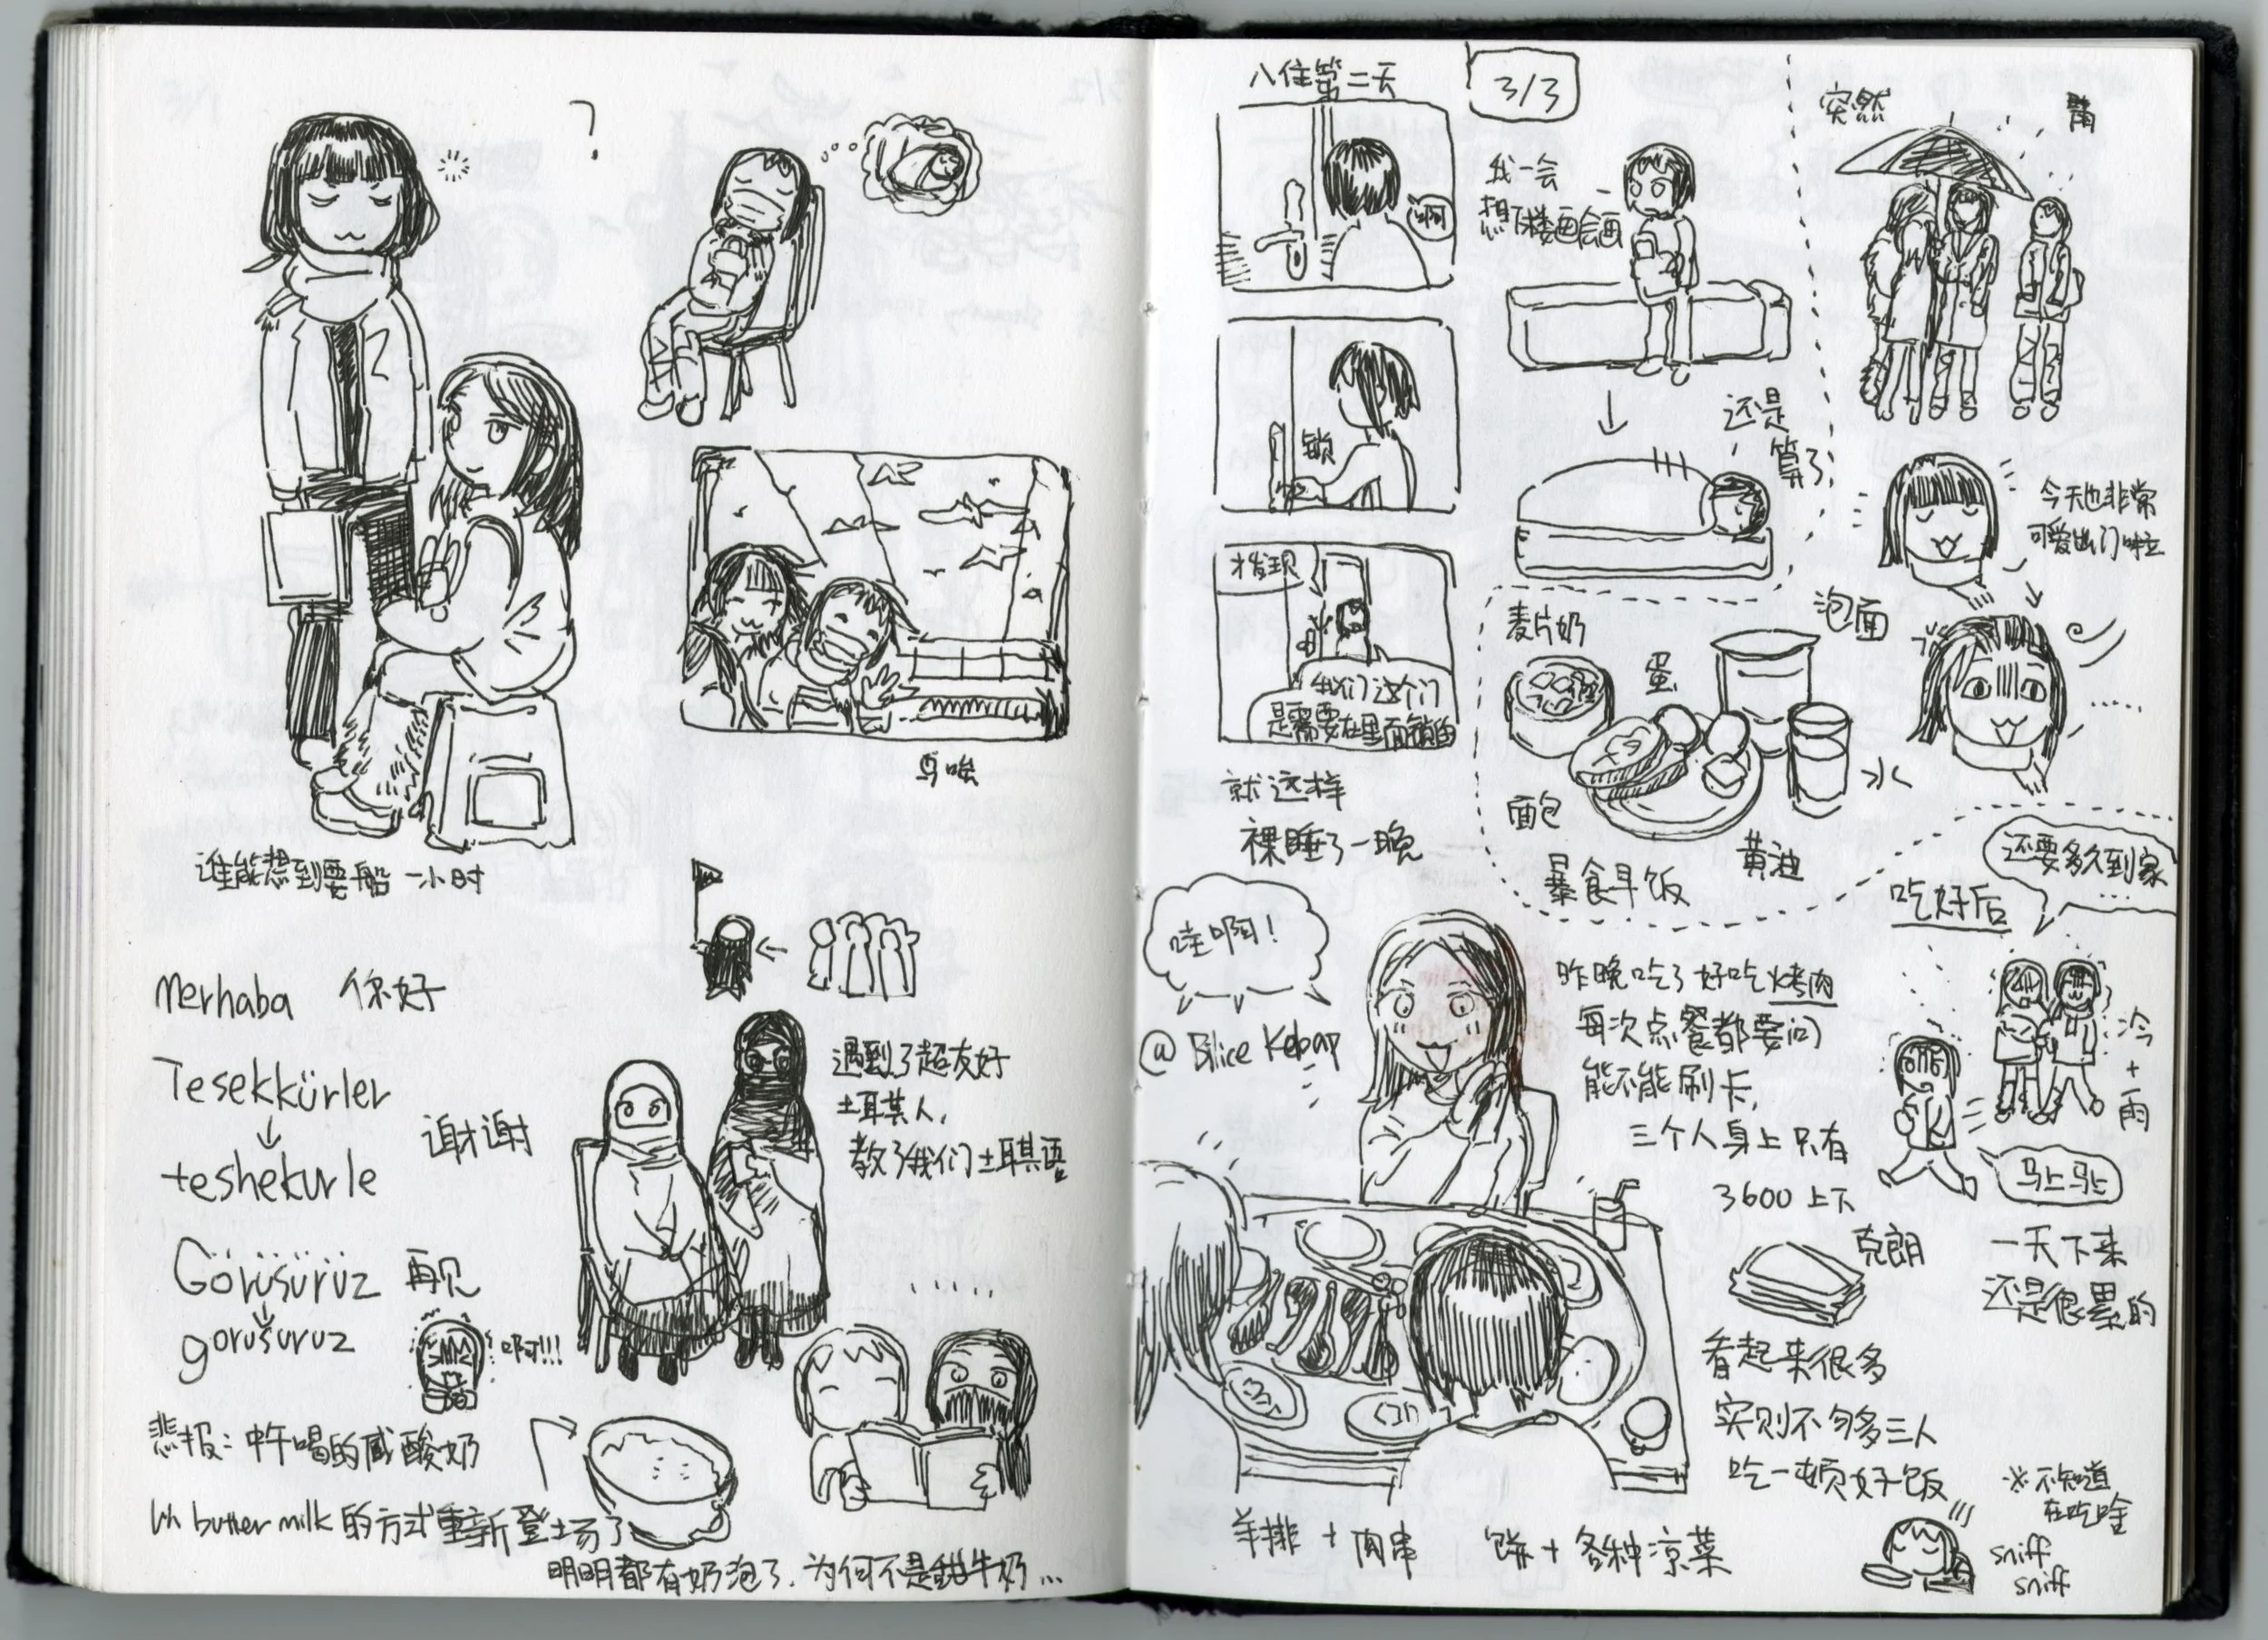 ?
谁能想到要船一小时
merhaba 你好
Tesekkürler
↓
teshekurle
谢谢
Görüsürüz 再见
gorusuruz
啊!!!
悲报：中午喝的咸酸奶
以 butter milk 的方式重新登场了
明明都有奶泡了，为何不是甜牛奶...
遇到了超友好
土耳其人，
教了我们土耳其语
.....
入住第二天
3/3
啊
锁
才发现
我们这个门
是需要在里面锁的
就这样
裸睡了一晚
我一会
想下楼画会画
↓
还是
算了
突然
今天也非常
可爱出门啦
.....
麦片奶
泡面
蛋
水
面包
黄油
暴食早饭
哇啊!
@ Bilice Kebap
昨晚吃了好吃烤肉
每次点餐都要问
能不能刷卡，
三个人身上只有
3600上下
克朗
看起来很多
实则不够多三人
吃一顿好饭
羊排 + 肉串 饼 + 各种凉菜
吃好后
还要多久到家
...
冷
+
雨
马上马上
一天下来
还是很累的
※不知道
在吃啥
sniff
sniff